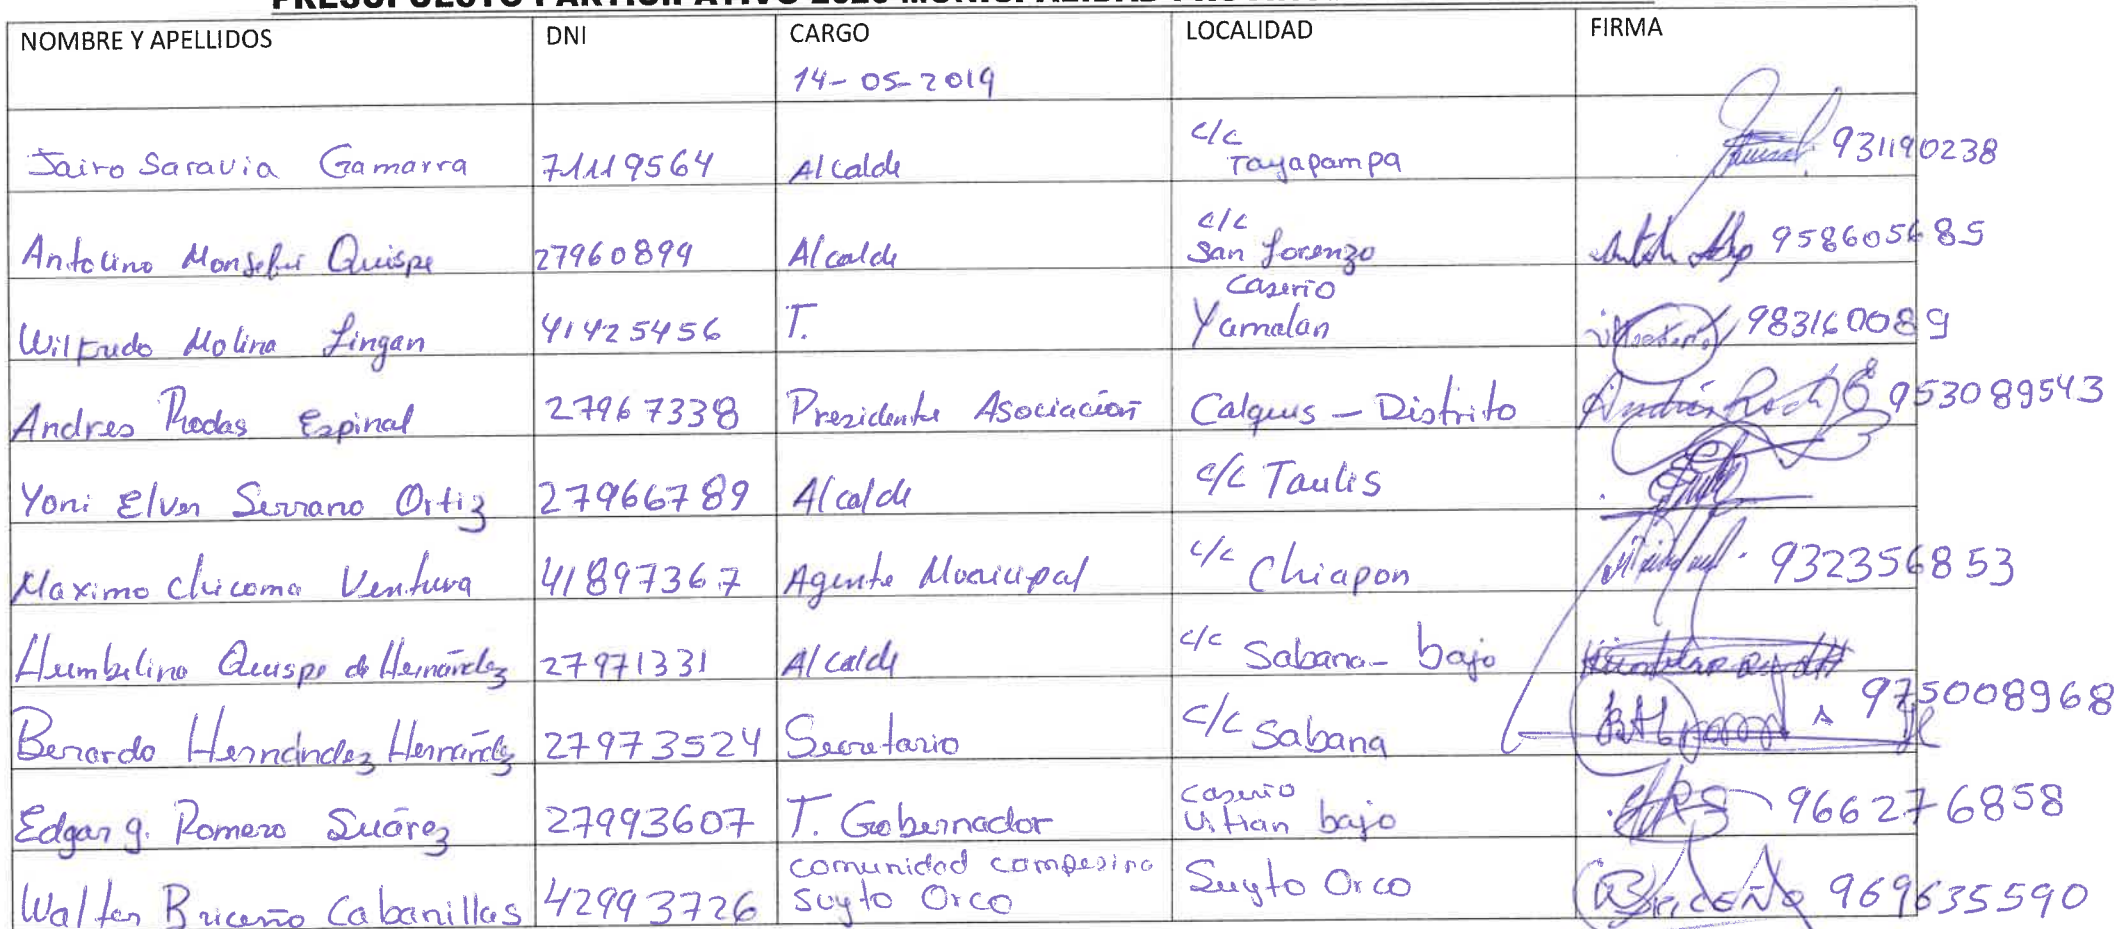 PRESUPUESTO PARTICIPATIVO 2020 MUNICIPALIDAD
NOMBRE Y APELLIDOS DNI CARGO LOCALIDAD FIRMA
14-05-2019
Jairo Saravia Gamarra 71119564 Alcalde c/c Tayapampa 931190238
Antolino Monsefui Quispe 27960899 Alcalde c/c San Lorenzo 958605685
Wilfrudo Molina Lingan 41425456 T. Caserio Yamalan 983160089
Andres Rodas Espinal 27967338 Prezidente Asociación Calquis - Distrito 953089543
Yoni Elver Serrano Ortiz 27966789 Alcalde c/c Taulis
Maximo Chicoma Ventura 41897367 Agente Municipal c/c Chiapon 932356853
Humbelino Quispe de Hernández 27971331 Alcalde c/c Sabana - bajo
Berardo Hernández Hernández 27973524 Secretario c/c Sabana 975008968
Edgar g. Romero Suárez 27993607 T. Gobernador caserio Utian bajo 966276858
Walter Briceño Cabanillas 42993726 comunidad campesina Suyto Orco Suyto Orco Briceño 969635590